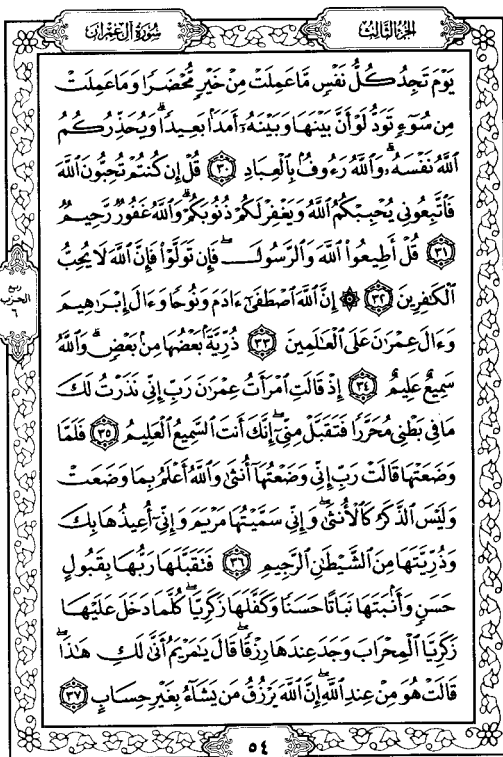 سُورَةُ آلِ عِمْرَانَ
الجُزْءُ الثَّالِثُ
يَوْمَ تَجِدُ كُلُّ نَفْسٍ مَّا عَمِلَتْ مِنْ خَيْرٍ مُّحْضَرًا وَمَا عَمِلَتْ
مِن سُوٓءٍ تَوَدُّ لَوْ أَنَّ بَيْنَهَا وَبَيْنَهُۥٓ أَمَدَۢا بَعِيدًا ۗ وَيُحَذِّرُكُمُ
ٱللَّهُ نَفْسَهُۥ ۗ وَٱللَّهُ رَءُوفُۢ بِٱلْعِبَادِ ۝٣٠ قُلْ إِن كُنتُمْ تُحِبُّونَ ٱللَّهَ
فَٱتَّبِعُونِى يُحْبِبْكُمُ ٱللَّهُ وَيَغْفِرْ لَكُمْ ذُنُوبَكُمْ ۗ وَٱللَّهُ غَفُورٌ رَّحِيمٌ
۝٣١ قُلْ أَطِيعُوا۟ ٱللَّهَ وَٱلرَّسُولَ ۖ فَإِن تَوَلَّوْا۟ فَإِنَّ ٱللَّهَ لَا يُحِبُّ
ٱلْكَٰفِرِينَ ۝٣٢ ۞ إِنَّ ٱللَّهَ ٱصْطَفَىٰٓ ءَادَمَ وَنُوحًا وَءَالَ إِبْرَٰهِيمَ
وَءَالَ عِمْرَٰنَ عَلَى ٱلْعَٰلَمِينَ ۝٣٣ ذُرِّيَّةَۢ بَعْضُهَا مِنۢ بَعْضٍ ۗ وَٱللَّهُ
سَمِيعٌ عَلِيمٌ ۝٣٤ إِذْ قَالَتِ ٱمْرَأَتُ عِمْرَٰنَ رَبِّ إِنِّى نَذَرْتُ لَكَ
مَا فِى بَطْنِى مُحَرَّرًا فَتَقَبَّلْ مِنِّىٓ ۖ إِنَّكَ أَنتَ ٱلسَّمِيعُ ٱلْعَلِيمُ ۝٣٥ فَلَمَّا
وَضَعَتْهَا قَالَتْ رَبِّ إِنِّى وَضَعْتُهَآ أُنثَىٰ وَٱللَّهُ أَعْلَمُ بِمَا وَضَعَتْ
وَلَيْسَ ٱلذَّكَرُ كَٱلْأُنثَىٰ ۖ وَإِنِّى سَمَّيْتُهَا مَرْيَمَ وَإِنِّىٓ أُعِيذُهَا بِكَ
وَذُرِّيَّتَهَا مِنَ ٱلشَّيْطَٰنِ ٱلرَّجِيمِ ۝٣٦ فَتَقَبَّلَهَا رَبُّهَا بِقَبُولٍ
حَسَنٍ وَأَنۢبَتَهَا نَبَاتًا حَسَنًا وَكَفَّلَهَا زَكَرِيَّا ۖ كُلَّمَا دَخَلَ عَلَيْهَا
زَكَرِيَّا ٱلْمِحْرَابَ وَجَدَ عِندَهَا رِزْقًا ۖ قَالَ يَٰمَرْيَمُ أَنَّىٰ لَكِ هَٰذَا ۖ
قَالَتْ هُوَ مِنْ عِندِ ٱللَّهِ ۖ إِنَّ ٱللَّهَ يَرْزُقُ مَن يَشَآءُ بِغَيْرِ حِسَابٍ ۝٣٧
ربع
الحزب
٦
٥٤